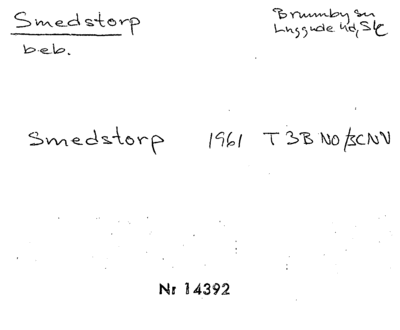 Smedstorp
beb.
Brunnby sn
Luggude hd, Sk
Smedstorp 1961 T 3B NO/3C NV
Nr 14392